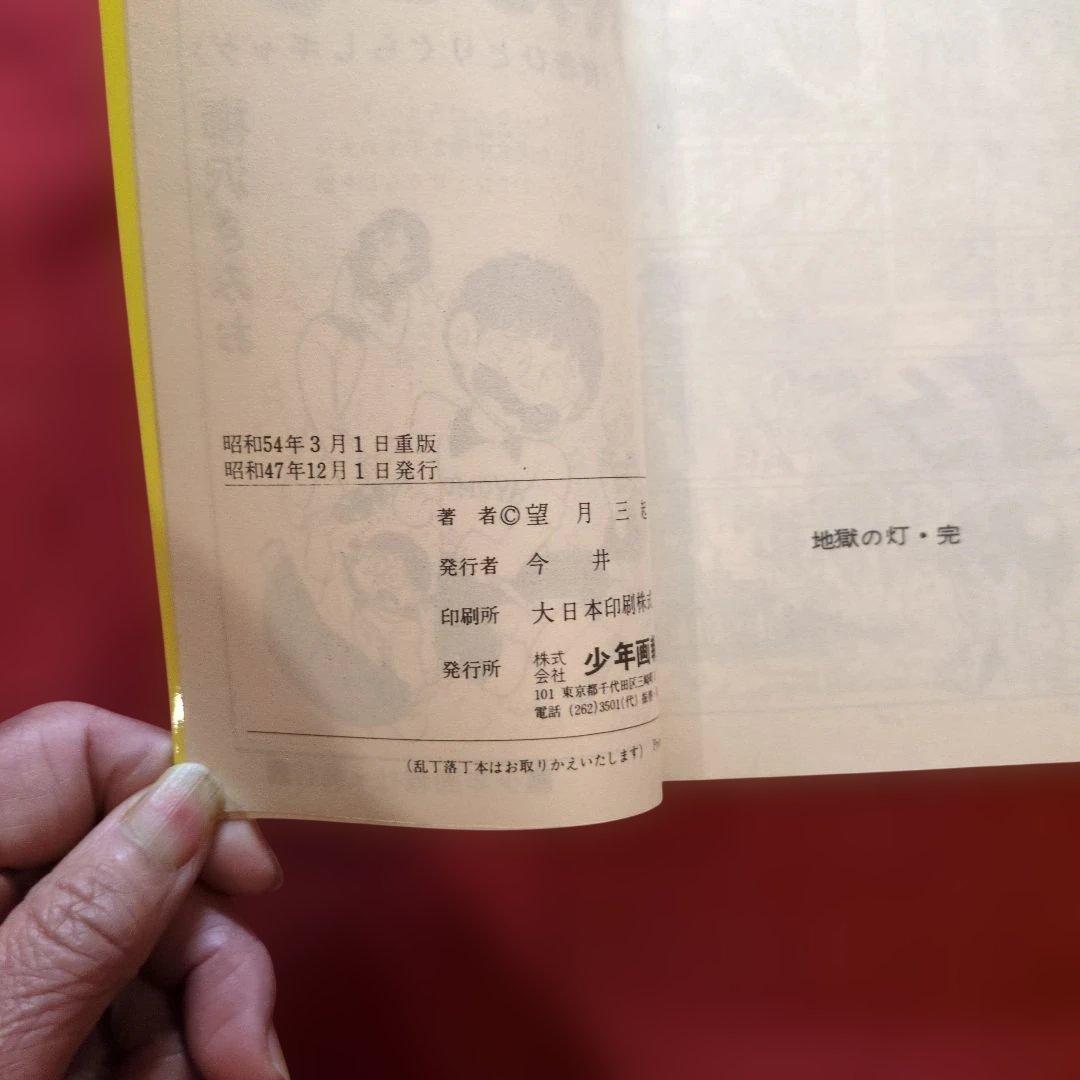 昭和54年3月1日重版
昭和47年12月1日発行
著 者©望 月 三
発行者 今 井
印刷所 大日本印刷株式
発行所 株式会社 少年画
101 東京都千代田区三崎町
電話 (262)3501(代) 振替
(乱丁落丁本はお取りかえいたします)
地獄の灯・完